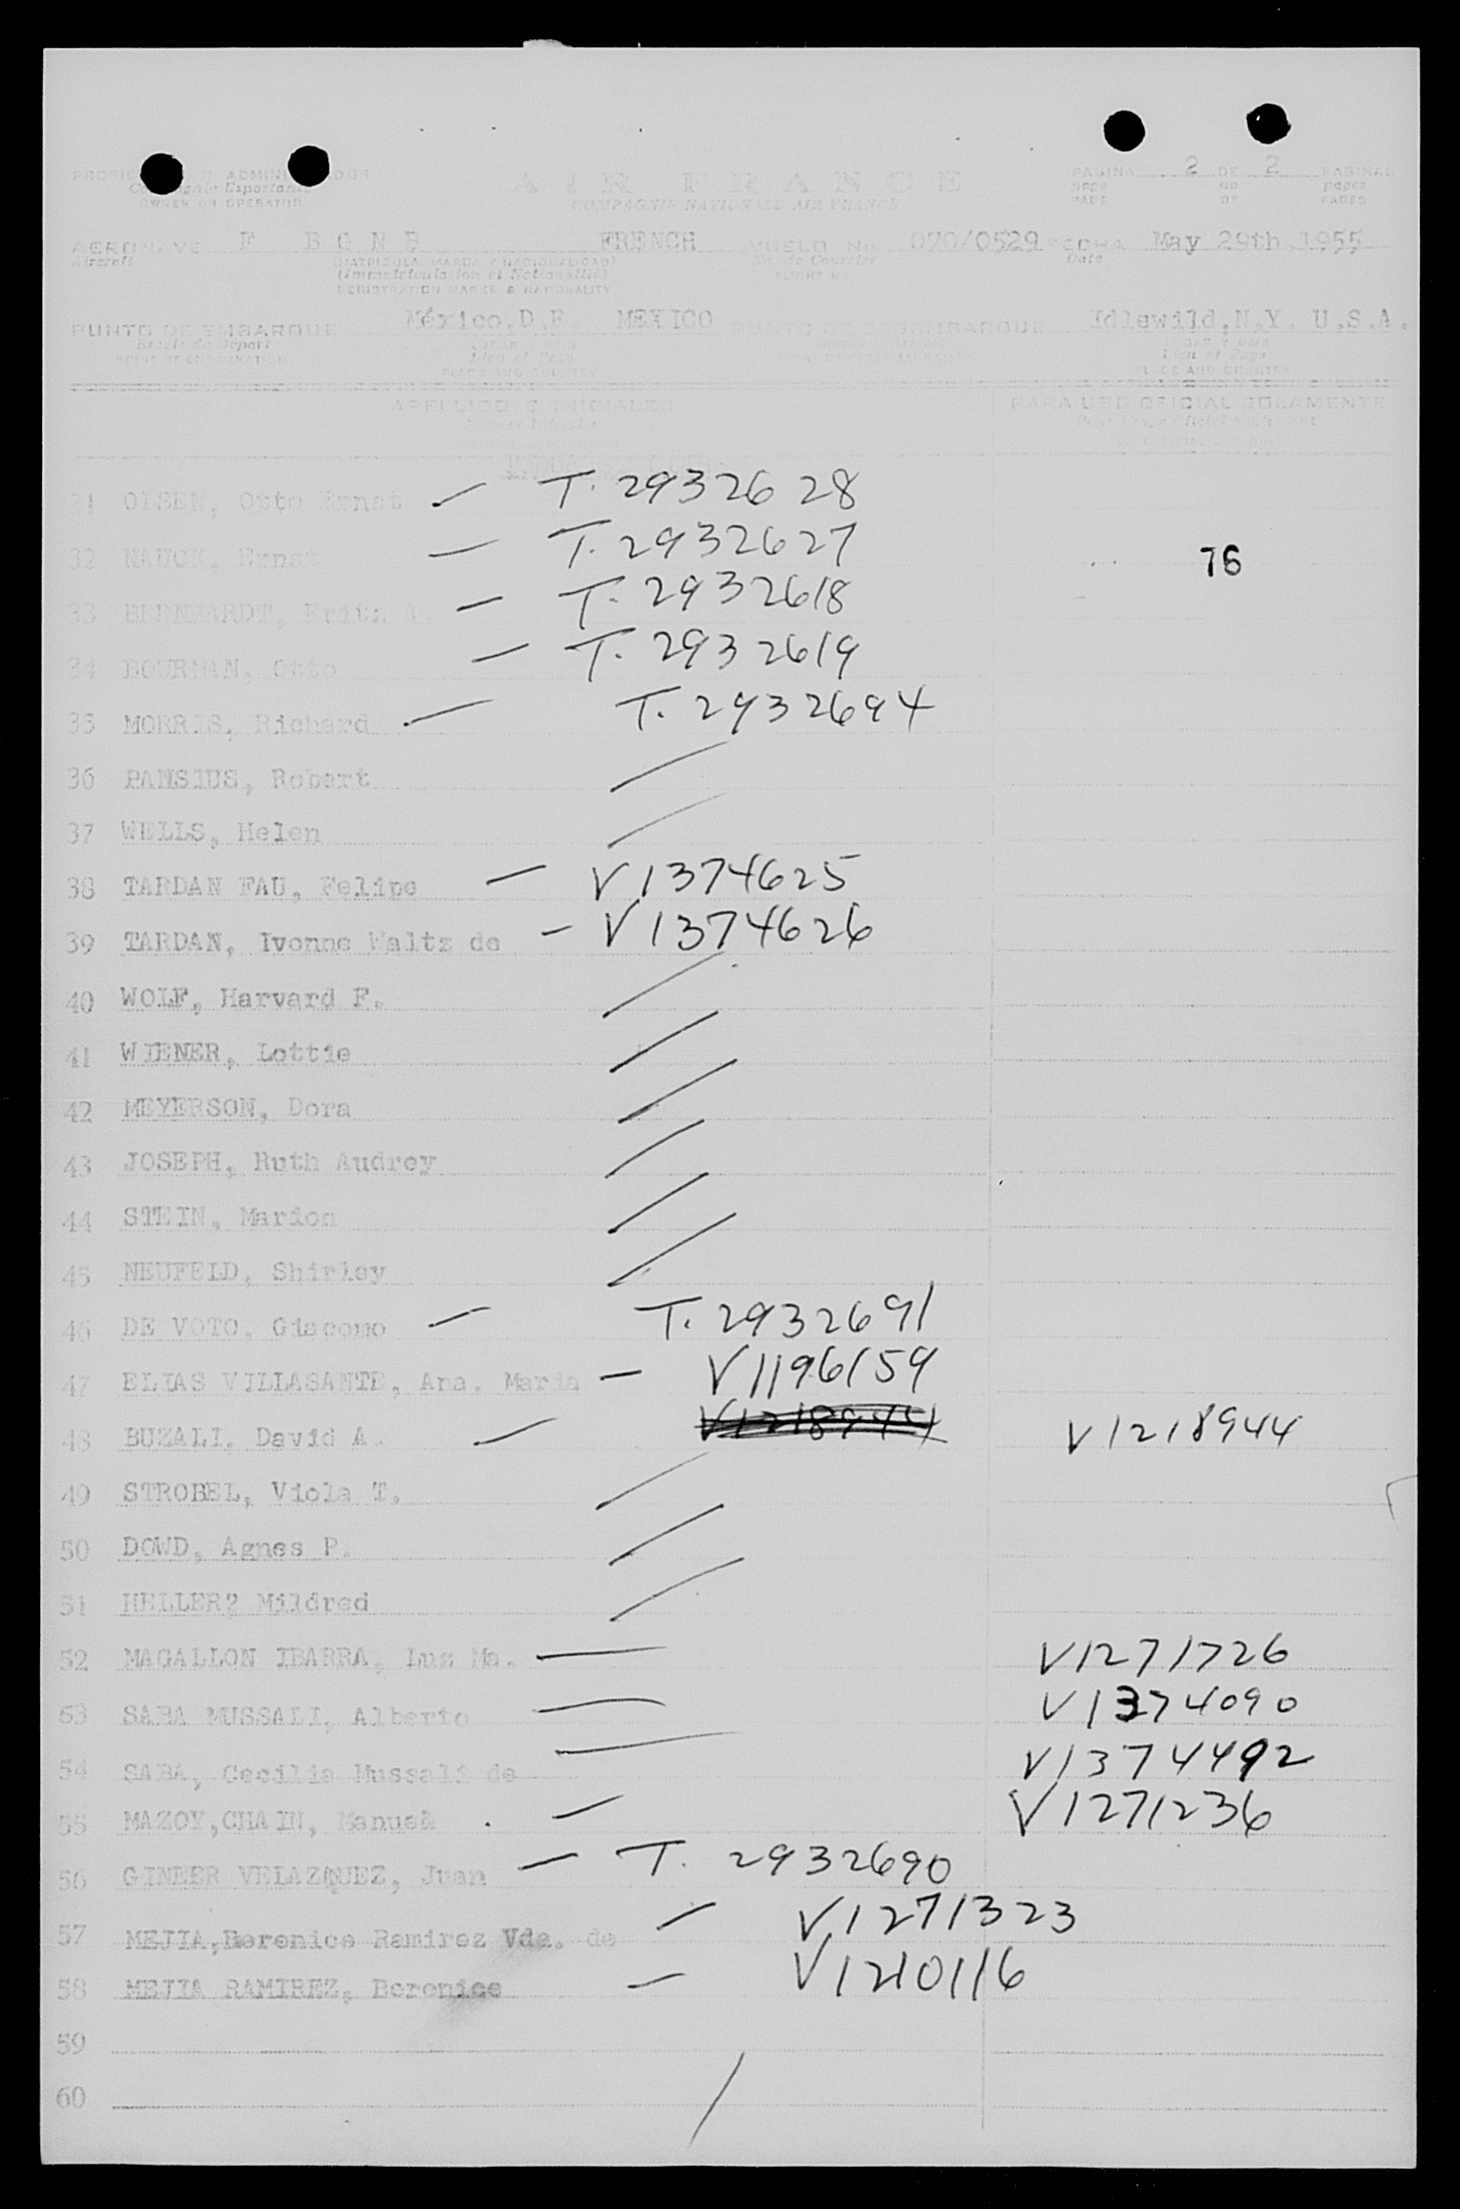 AIR FRANCE
COMPAGNIE NATIONALE AIR FRANCE
PAGINA 2 DE 2 PAGINAS
OWNER OR OPERATOR
F B G N B FRENCH VUELO No. 070/0529 FECHA May 29th, 1955
Aircraft Date
REGISTRATION MARKS & NATIONALITY
PUNTO DE EMBARQUE México, D.F. MEXICO PUNTO DE DESEMBARQUE Idlewild, N.Y. U.S.A.
PLACE AND COUNTRY PLACE AND COUNTRY
APELLIDOS E INICIALES PARA USO OFICIAL SOLAMENTE
31 OLSEN, Otto Ernst — T. 2932628
32 NAUCK, Ernst — T. 2932627 76
33 BERNHARDT, Fritz A. — T. 2932618
34 BOURMAN, Otto — T. 2932619
35 MORRIS, Richard — T. 2932694
36 PAMSIUS, Robert
37 WELLS, Helen
38 TARDAN FAU, Felipe — V1374625
39 TARDAN, Ivonne Waltz de — V1374626
40 WOLF, Harvard F.
41 WIENER, Lottie
42 MEYERSON, Dora
43 JOSEPH, Ruth Audrey
44 STEIN, Marion
45 NEUFELD, Shirley
46 DE VOTO, Giacomo — T. 2932691
47 ELIAS VILLASANTE, Ana. Maria — V1196159
48 BUZALI, David A. — V1218944 V1218944
49 STROBEL, Viola T.
50 DOWD, Agnes P.
51 HELLER? Mildred
52 MAGALLON IBARRA, Luz Ma. — V1271726
53 SABA MUSSALI, Alberto — V1374090
54 SABA, Cecilia Mussali de — V1374492
55 MAZOY, CHAIN, Manuel — V1271236
56 GINDER VELAZQUEZ, Juan — T. 2932690
57 MEJIA, Berenice Ramirez Vda. de — V1271323
58 MEJIA RAMIREZ, Berenice — V1210116
59
60